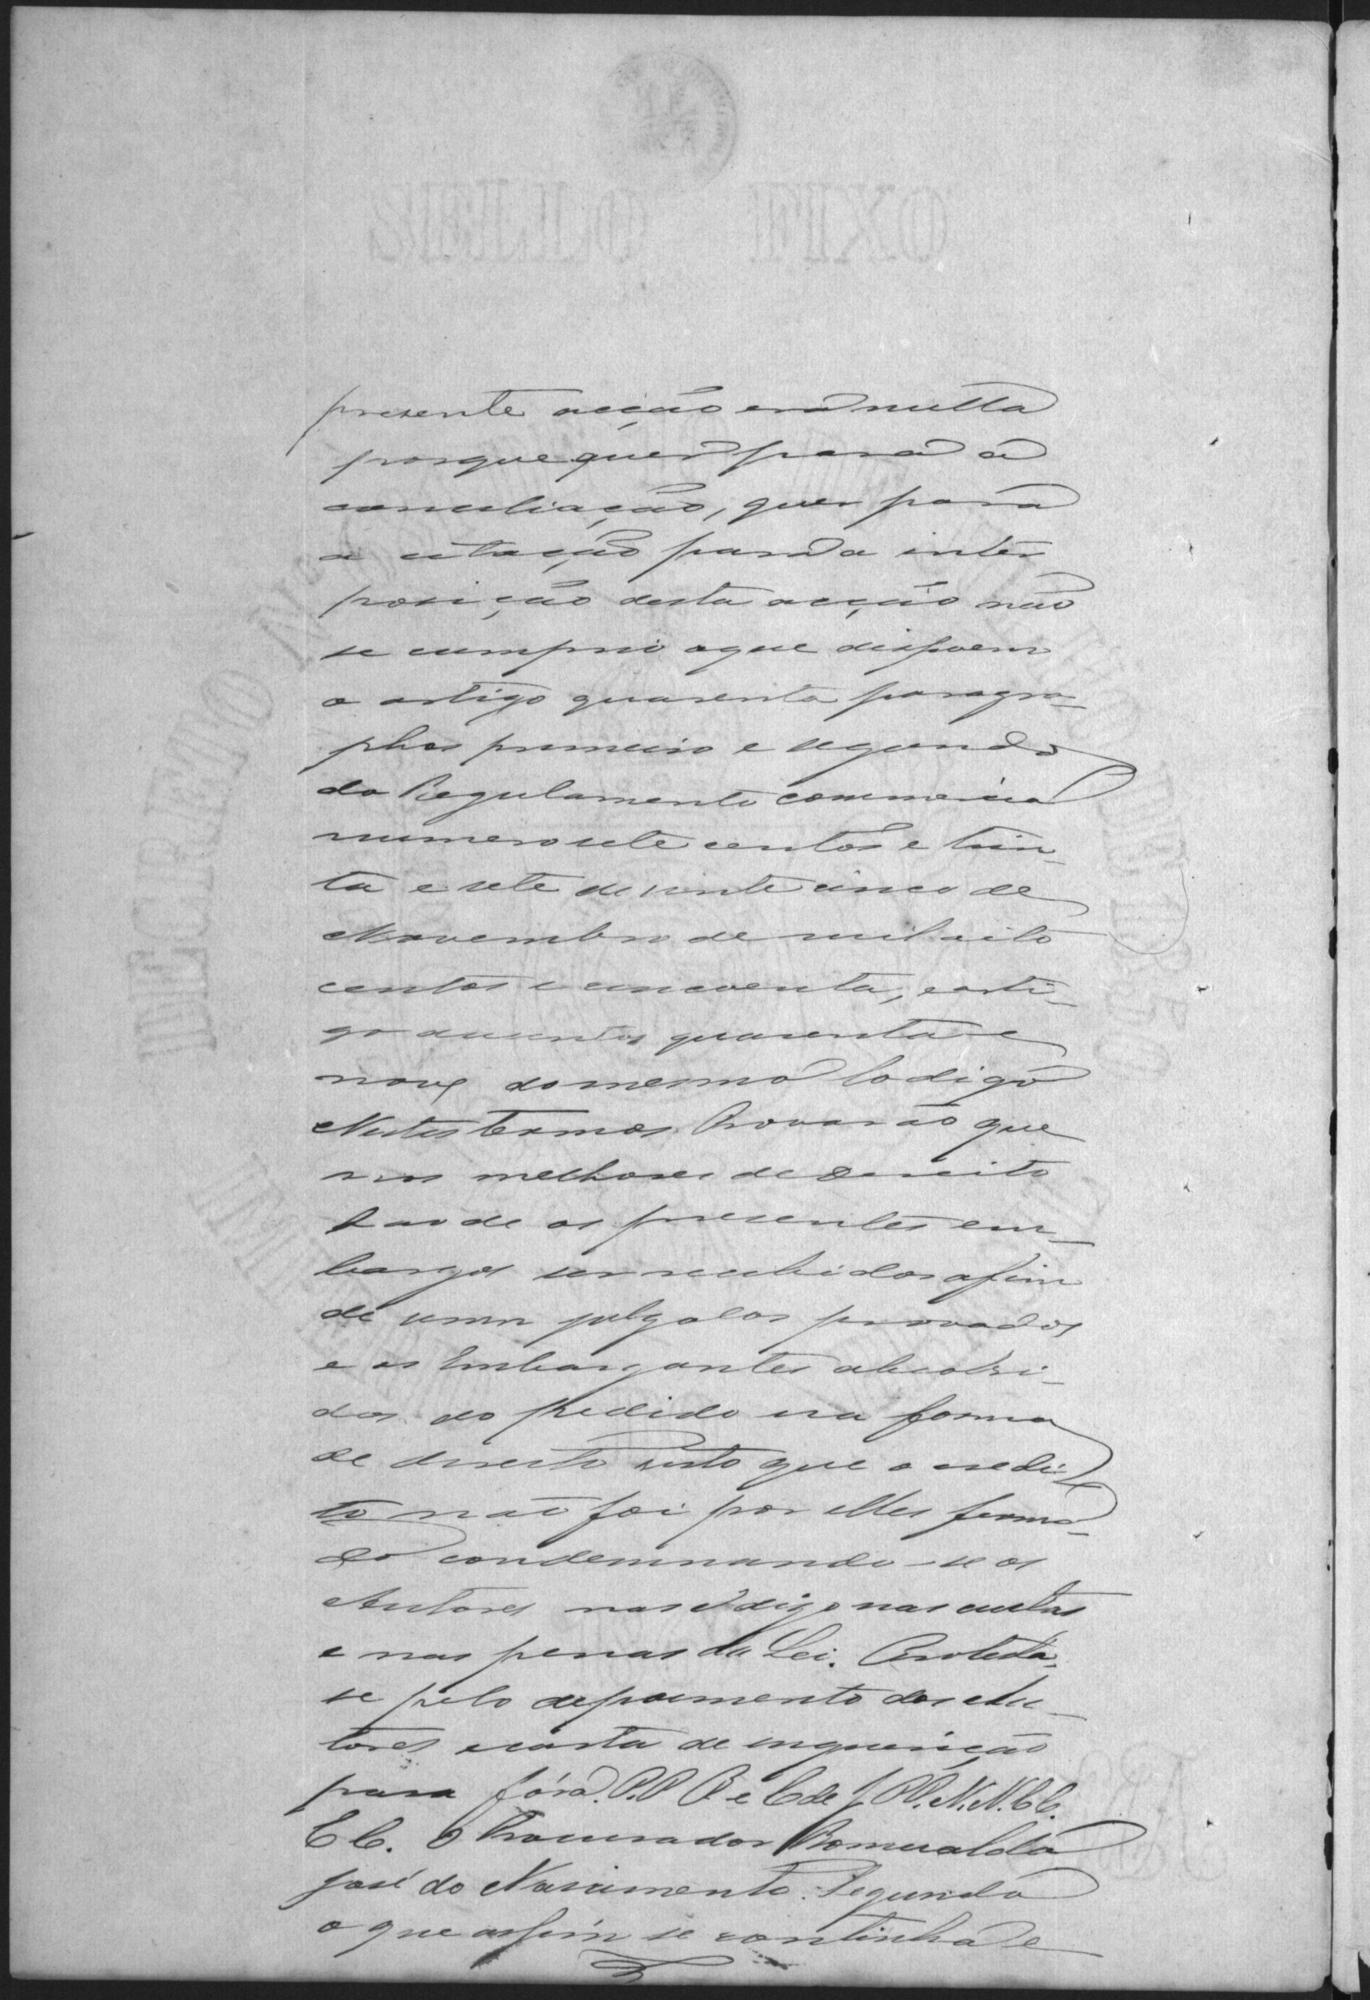 SELLO FIXO
DECRETO Nº
presente acção era nulla
porque quer para a
conciliação, quer para
a citação para a inter
posição desta acção não
se cumprio o que dispoem
o artigo quarenta paragra-
phos primeiro e segundo
do Regulamento commercial
numero sete centos e trin-
ta e sete de vinte cinco de
Novembro de mil oito
centos e cincoenta, e arti-
go duzentos quarenta e
nove do mesmo Codigo
Nestes termos Provarão que
nos melhores de Direito
hao de os presentes em-
bargos ser recebidos afim
de serem julgados provados
e os Embargantes absolvi-
dos do pedido na forma
de direito visto que o credi-
to não foi por elles firma-
do condemnando-se os
Autores nas digo nas custas
e nas penas da Lei. Protesta-
se pelo depoimento dos Au-
tores e carta de inquirição
para fóra. P.P. R. e C. de J. P.P. N.N. C.C.
E C. O Procurador Romualdo
José do Nascimento. Segundo
o que assim se continha e